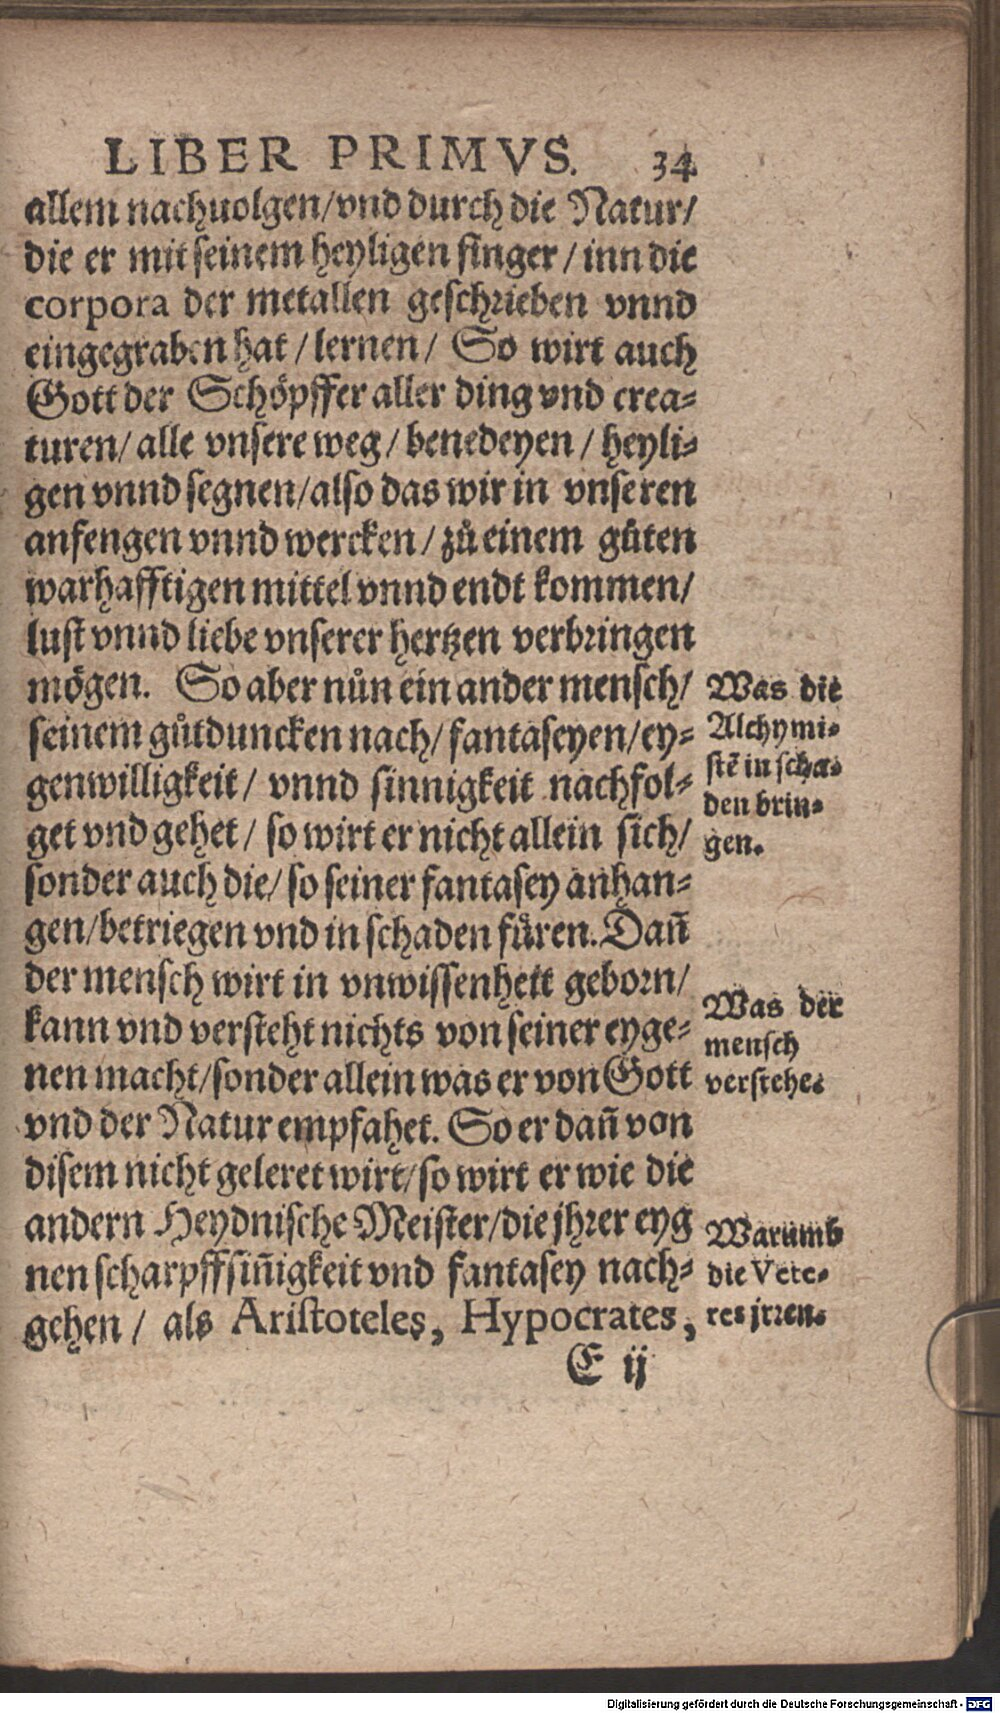 LIBER PRIMVS. 34
allem nachuolgen/vnd durch die Natur/
die er mit seinem heyligen finger / inn die
corpora der metallen geschrieben vnnd
eingegraben hat / lernen / So wirt auch
Gott der Schöpffer aller ding vnd crea⸗
turen/ alle vnsere weg / benedeyen / heyli⸗
gen vnnd segnen/also das wir in vnseren
anfengen vnnd wercken / zů einem gůten
warhafftigen mittel vnnd endt kommen/
lust vnnd liebe vnserer hertzen verbringen
mögen. So aber nůn ein ander mensch/
seinem gůtduncken nach/ fantaseyen/ey⸗
genwilligkeit / vnnd sinnigkeit nachfol⸗
get vnd gehet / so wirt er nicht allein sich/
sonder auch die/ so seiner fantasey anhan⸗
gen/betriegen vnd in schaden füren. Dañ
der mensch wirt in vnwissenheit geborn/
kann vnd versteht nichts von seiner eyge⸗
nen macht/sonder allein was er von Gott
vnd der Natur empfahet. So er dañ von
disem nicht geleret wirt/so wirt er wie die
andern Heydnische Meister/die jhrer eyg
nen scharpffsiñigkeit vnd fantasey nach⸗
gehen / als Aristoteles, Hypocrates,
E ij
Was die
Alchymi⸗
stē in scha⸗
den brin⸗
gen.
Was der
mensch
verstehe.
Warumb
die Vete⸗
res jrren.
Digitalisierung gefördert durch die Deutsche Forschungsgemeinschaft - DFG